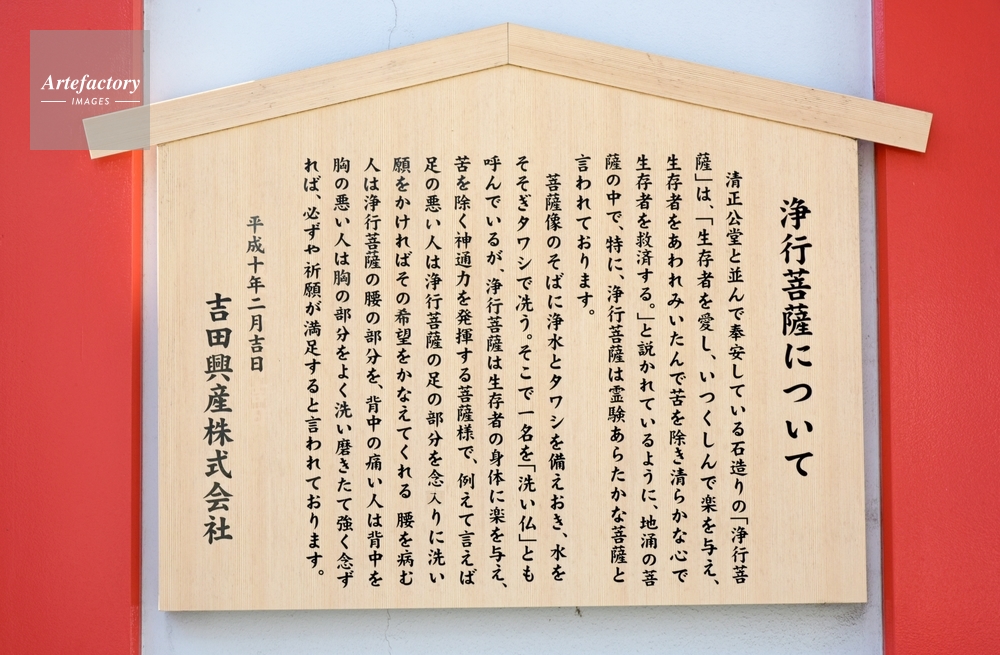 Artefactory
IMAGES
浄行菩薩について
清正公堂と並んで奉安している石造りの「浄行菩
薩」は、「生存者を愛し、いつくしんで楽を与え、
生存者をあわれみいたんで苦を除き清らかな心で
生存者を救済する。」と説かれているように、地涌の菩
薩の中で、特に、浄行菩薩は霊験あらたかな菩薩と
言われております。
菩薩像のそばに浄水とタワシを備えおき、水を
そそぎタワシで洗う。そこで一名を「洗い仏」とも
呼んでいるが、浄行菩薩は生存者の身体に楽を与え、
苦を除く神通力を発揮する菩薩様で、例えて言えば
足の悪い人は浄行菩薩の足の部分を念入りに洗い
願をかければその希望をかなえてくれる 腰を病む
人は浄行菩薩の腰の部分を、背中の痛い人は背中を
胸の悪い人は胸の部分をよく洗い磨きたて強く念ず
れば、必ずや祈願が満足すると言われております。
平成十年二月吉日
吉田興産株式会社